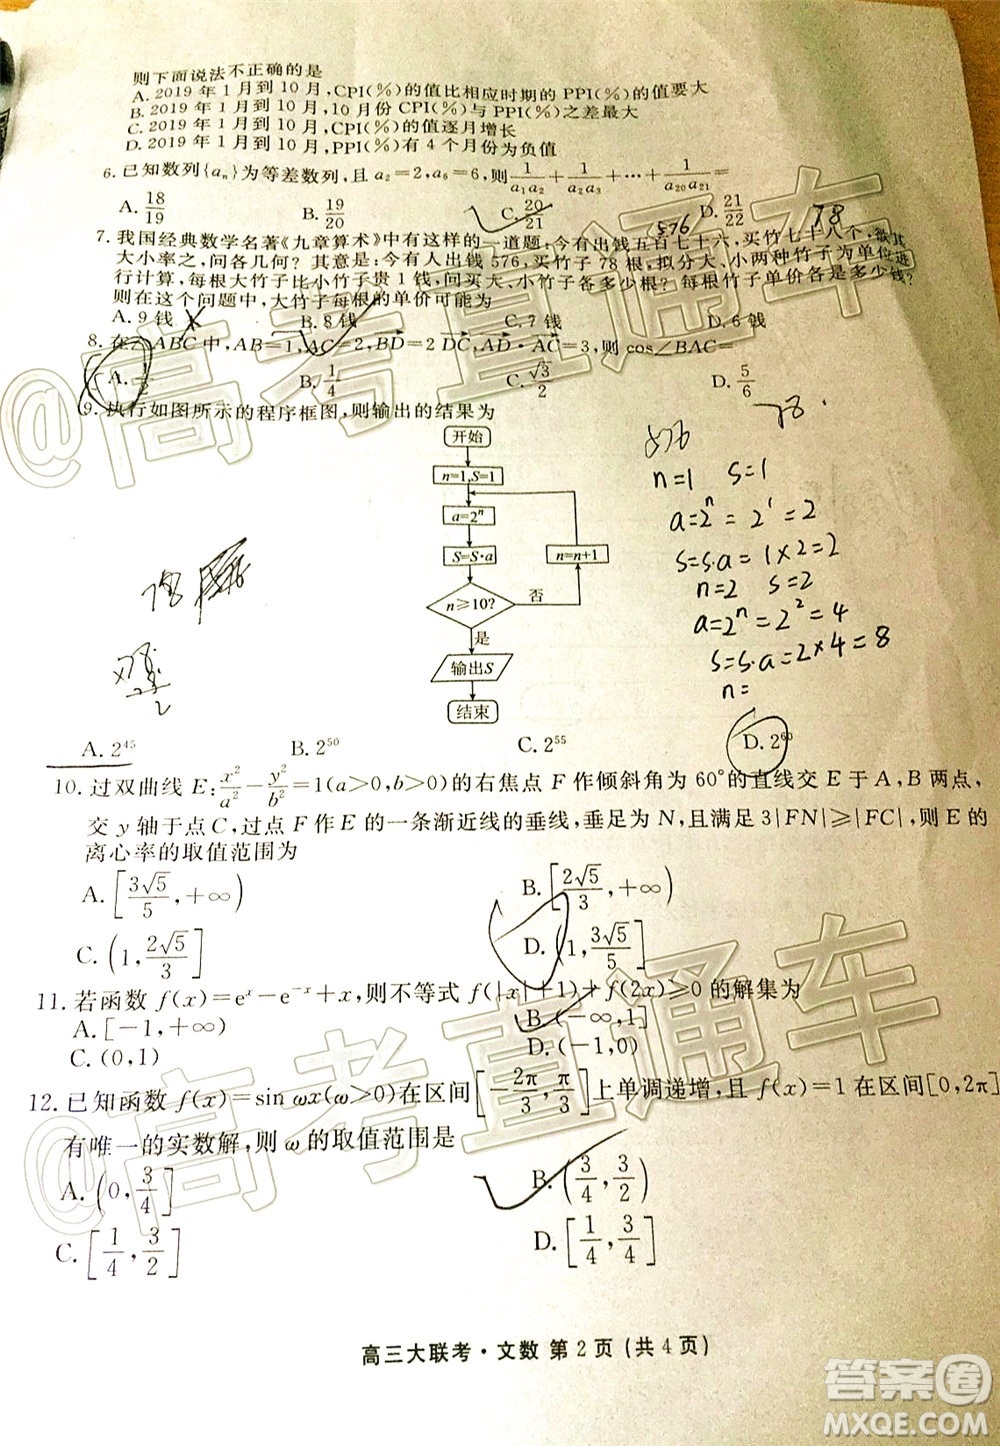 则下面说法不正确的是
A. 2019 年 1 月到 10 月, CPI(%)的值比相应时期的 PPI(%)的值要大
B. 2019 年 1 月到 10 月, 10 月份 CPI(%)与 PPI(%)之差最大
C. 2019 年 1 月到 10 月, CPI(%)的值逐月增长
D. 2019 年 1 月到 10 月, PPI(%)有 4 个月份为负值
6. 已知数列{aₙ}为等差数列, 且 a₂=2, a₆=6, 则 1/(a₁a₂) + 1/(a₂a₃) + ⋯ + 1/(a₂₀a₂₁) =
A. 18/19 B. 19/20 C. 20/21 D. 21/22
576 78
7. 我国经典数学名著《九章算术》中有这样的一道题: 今有出钱五百七十六, 买竹七十八个, 欲其
大小率之, 问各几何? 其意是: 今有人出钱 576, 买竹子 78 根, 拟分大、小两种竹子为单位进行
计算, 每根大竹子比小竹子贵 1 钱, 问买大、小竹子各多少根? 每根竹子单价各是多少钱?
则在这个问题中, 大竹子每根的单价可能为
A. 9 钱 B. 8 钱 C. 7 钱 D. 6 钱
8. 在△ABC 中, AB=1, AC=2, BD=2 DC, AD·AC=3, 则 cos∠BAC=
A. 1/2 B. 1/4 C. √3/2 D. 5/6
9. 执行如图所示的程序框图, 则输出的结果为
开始
n=1, S=1
a=2ⁿ
S=S·a
n=n+1
n≥10?
否
是
输出S
结束
78.
576
n=1 S=1
a=2ⁿ=2¹=2
S=S·a=1×2=2
n=2 S=2
a=2ⁿ=2²=4
S=S·a=2×4=8
n=
78
A. 2⁴⁵ B. 2⁵⁰ C. 2⁵⁵ D. 2⁶⁰
10. 过双曲线 E: x²/a² − y²/b² = 1(a>0, b>0)的右焦点 F 作倾斜角为 60°的直线交 E 于 A, B 两点,
交 y 轴于点 C, 过点 F 作 E 的一条渐近线的垂线, 垂足为 N, 且满足 3|FN|≥|FC|, 则 E 的
离心率的取值范围为
A. [3√5/5, +∞) B. [2√5/3, +∞)
C. (1, 2√5/3] D. (1, 3√5/5]
11. 若函数 f(x)=eˣ−e⁻ˣ+x, 则不等式 f(|x|+1)+f(2x)≥0 的解集为
A. [−1, +∞) B. (−∞, 1]
C. (0, 1) D. (−1, 0)
12. 已知函数 f(x)=sin ωx(ω>0)在区间[−2π/3, π/3]上单调递增, 且 f(x)=1 在区间[0, 2π]
有唯一的实数解, 则 ω 的取值范围是
A. (0, 3/4] B. (3/4, 3/2)
C. [1/4, 3/2] D. [1/4, 3/4]
高三大联考·文数 第 2 页 (共 4 页)
@高考直通车
@高考直通车
答案圈
MXQE.COM